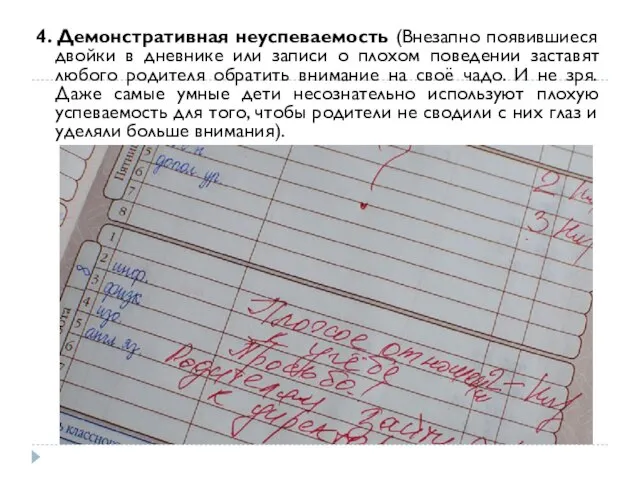 4. Демонстративная неуспеваемость (Внезапно появившиеся
двойки в дневнике или записи о плохом поведении заставят
любого родителя обратить внимание на своё чадо. И не зря.
Даже самые умные дети несознательно используют плохую
успеваемость для того, чтобы родители не сводили с них глаз и
уделяли больше внимания).
Пятни
5
6
7
8
допол ур.
2
3
1
2 инф.
3 физк
4 изо
5 англ яз.
6
7
Плохое отношение
к учёбе
2-
Родителям зайти
к директ
ь классног